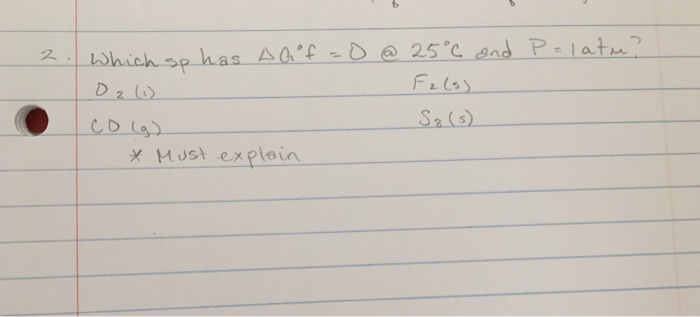 2. Which sp has ΔG°f = 0 @ 25°C and P = 1 atm?
O2 (l) F2 (s)
CO (g) S8 (s)
* Must explain